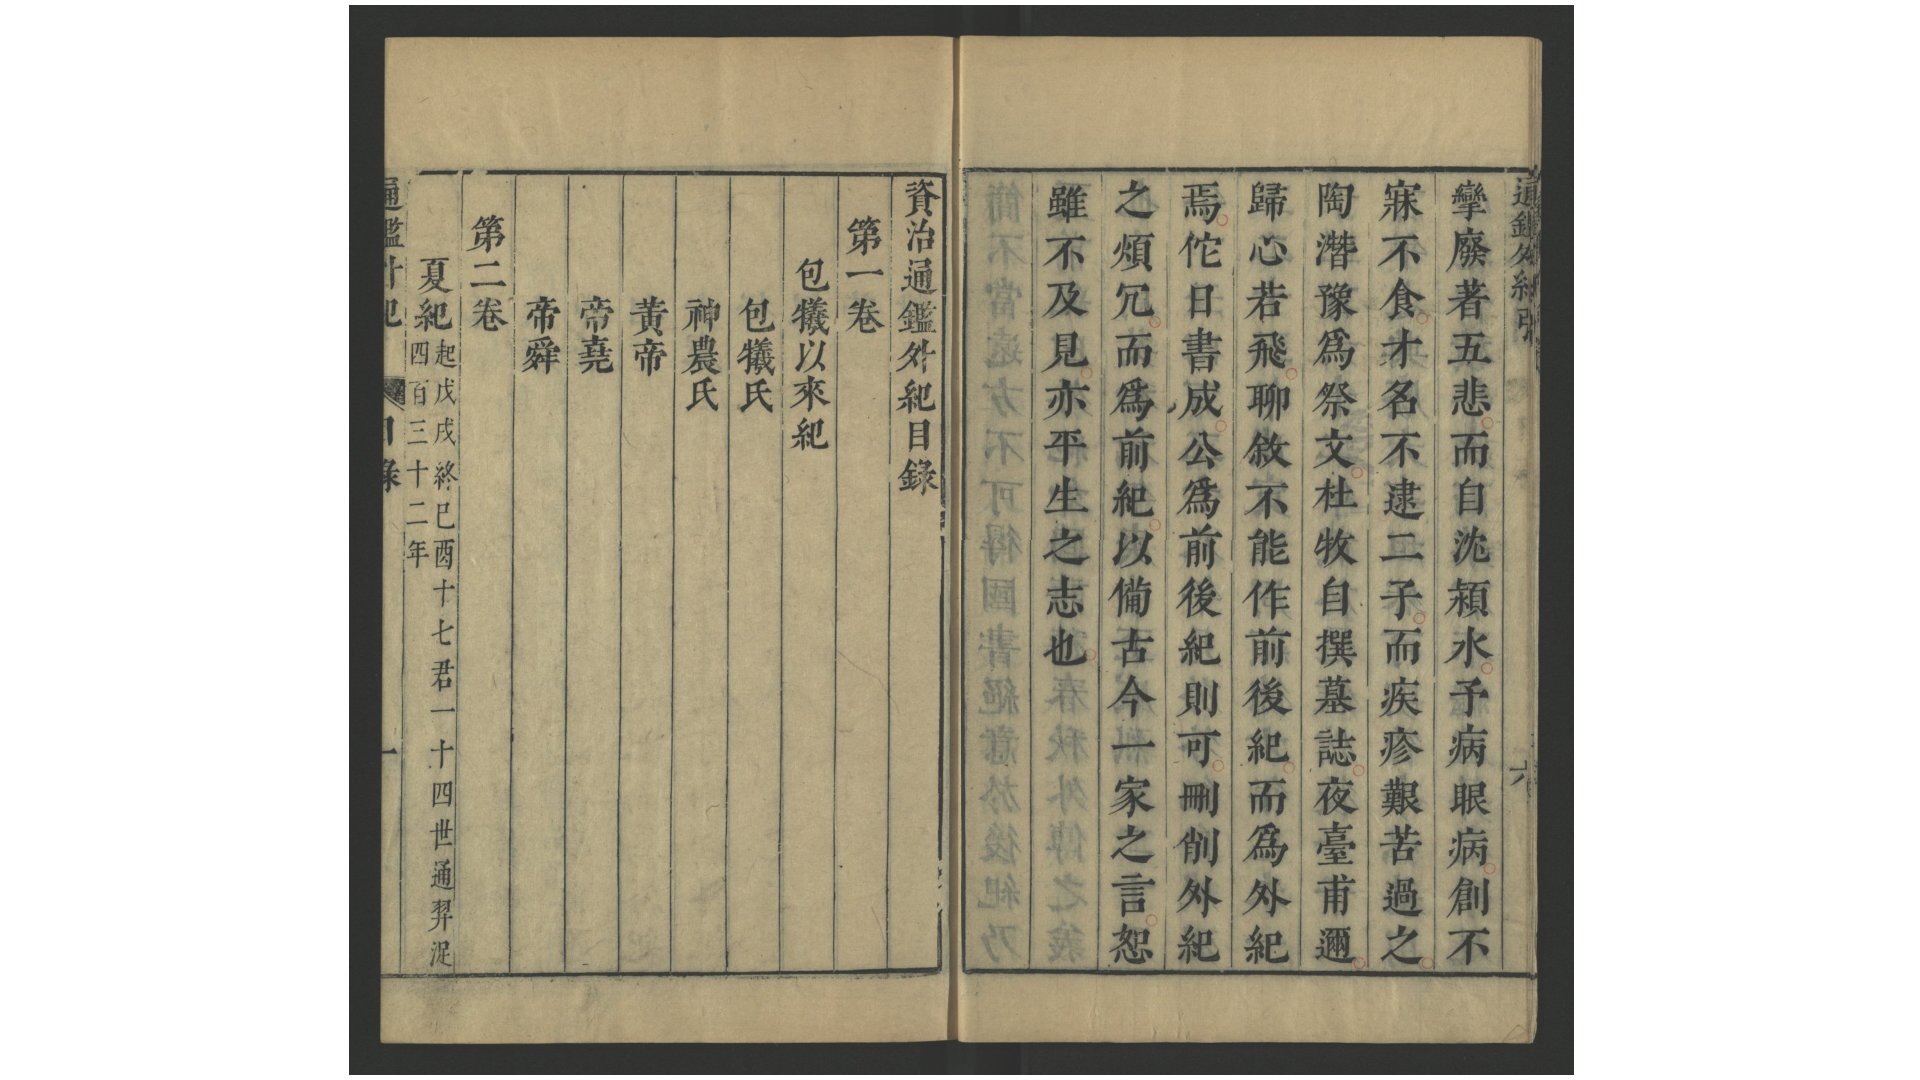 通鑑外紀
六
攣廢著五悲而自沈潁水予病眼病創不
寐不食才名不逮二子而疾疹艱苦過之
陶潛豫爲祭文杜牧自撰墓誌夜臺甫邇
歸心若飛聊敘不能作前後紀而爲外紀
焉佗日書成公爲前後紀則可刪削外紀
之煩冗而爲前紀以備古今一家之言恕
雖不及見亦平生之志也
資治通鑑外紀目錄
第一卷
包犧以來紀
包犧氏
神農氏
黃帝
帝堯
帝舜
第二卷
夏紀起戊戌終已酉十七君一十四世通羿浞
四百三十二年
通鑑外紀 目錄 一